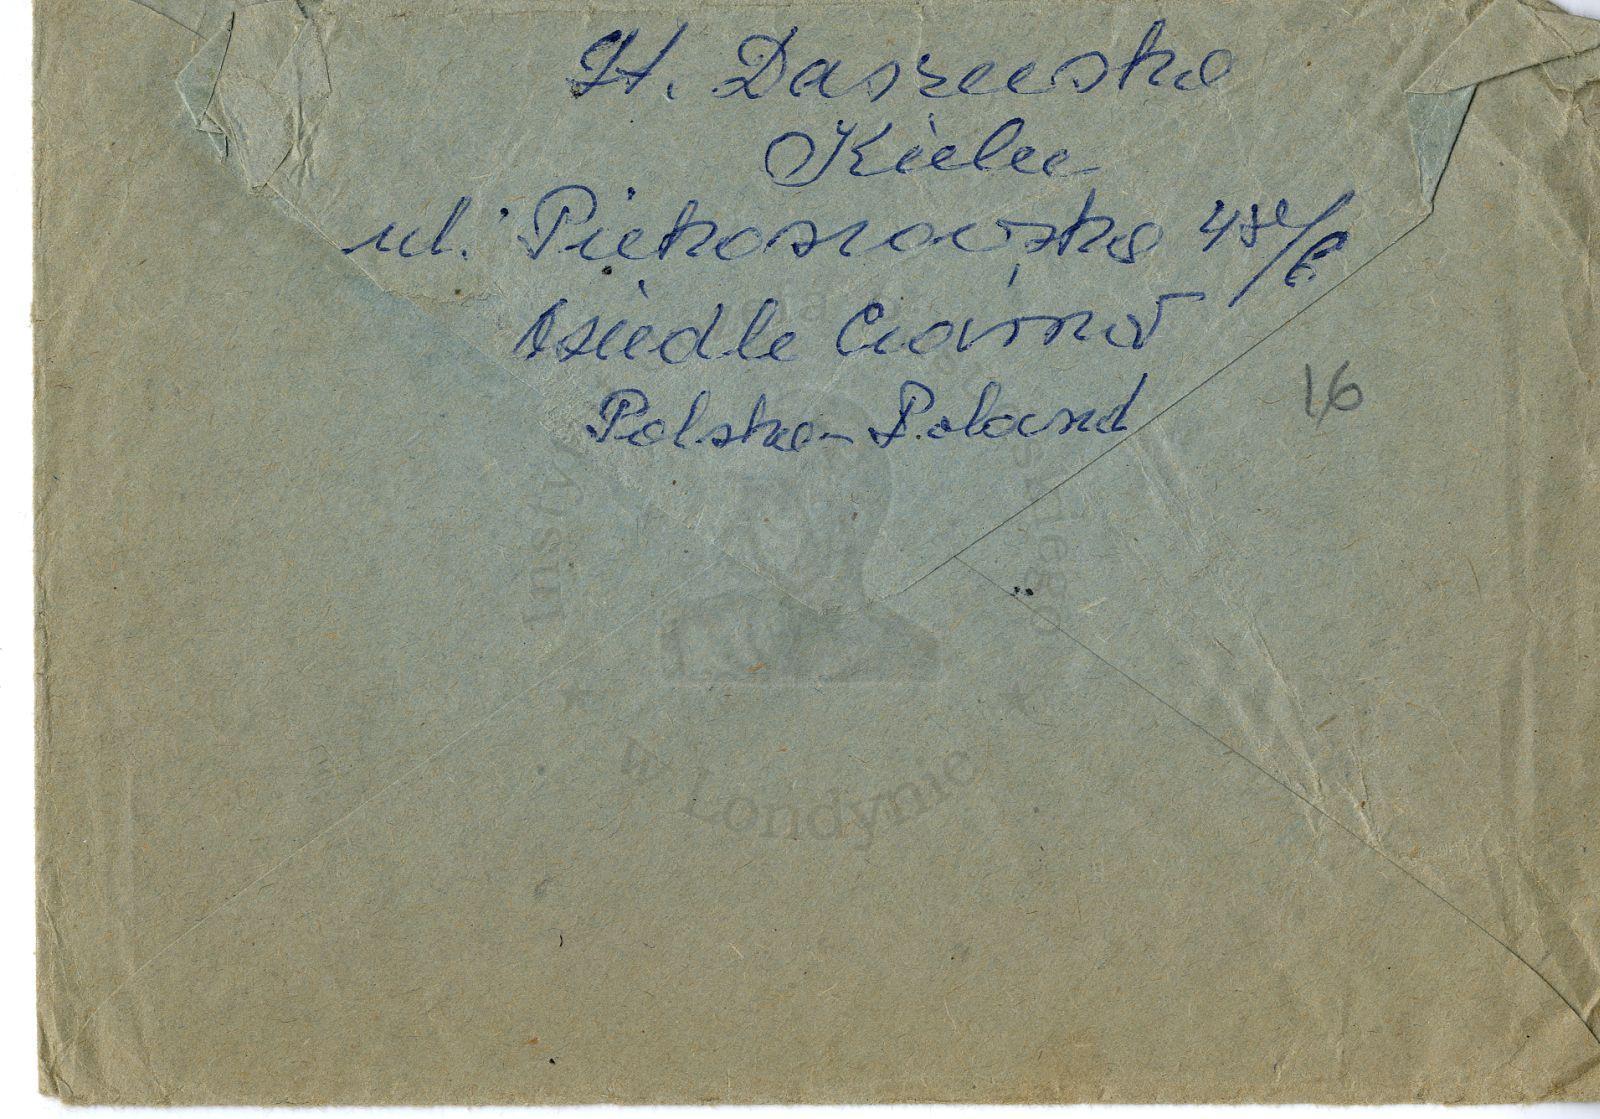 H. Daszewska
Kielce
ul. Piekoszowska
Osiedle Czarnów
Polska - Poland
16
Instytut Józefa Piłsudskiego
w Londynie